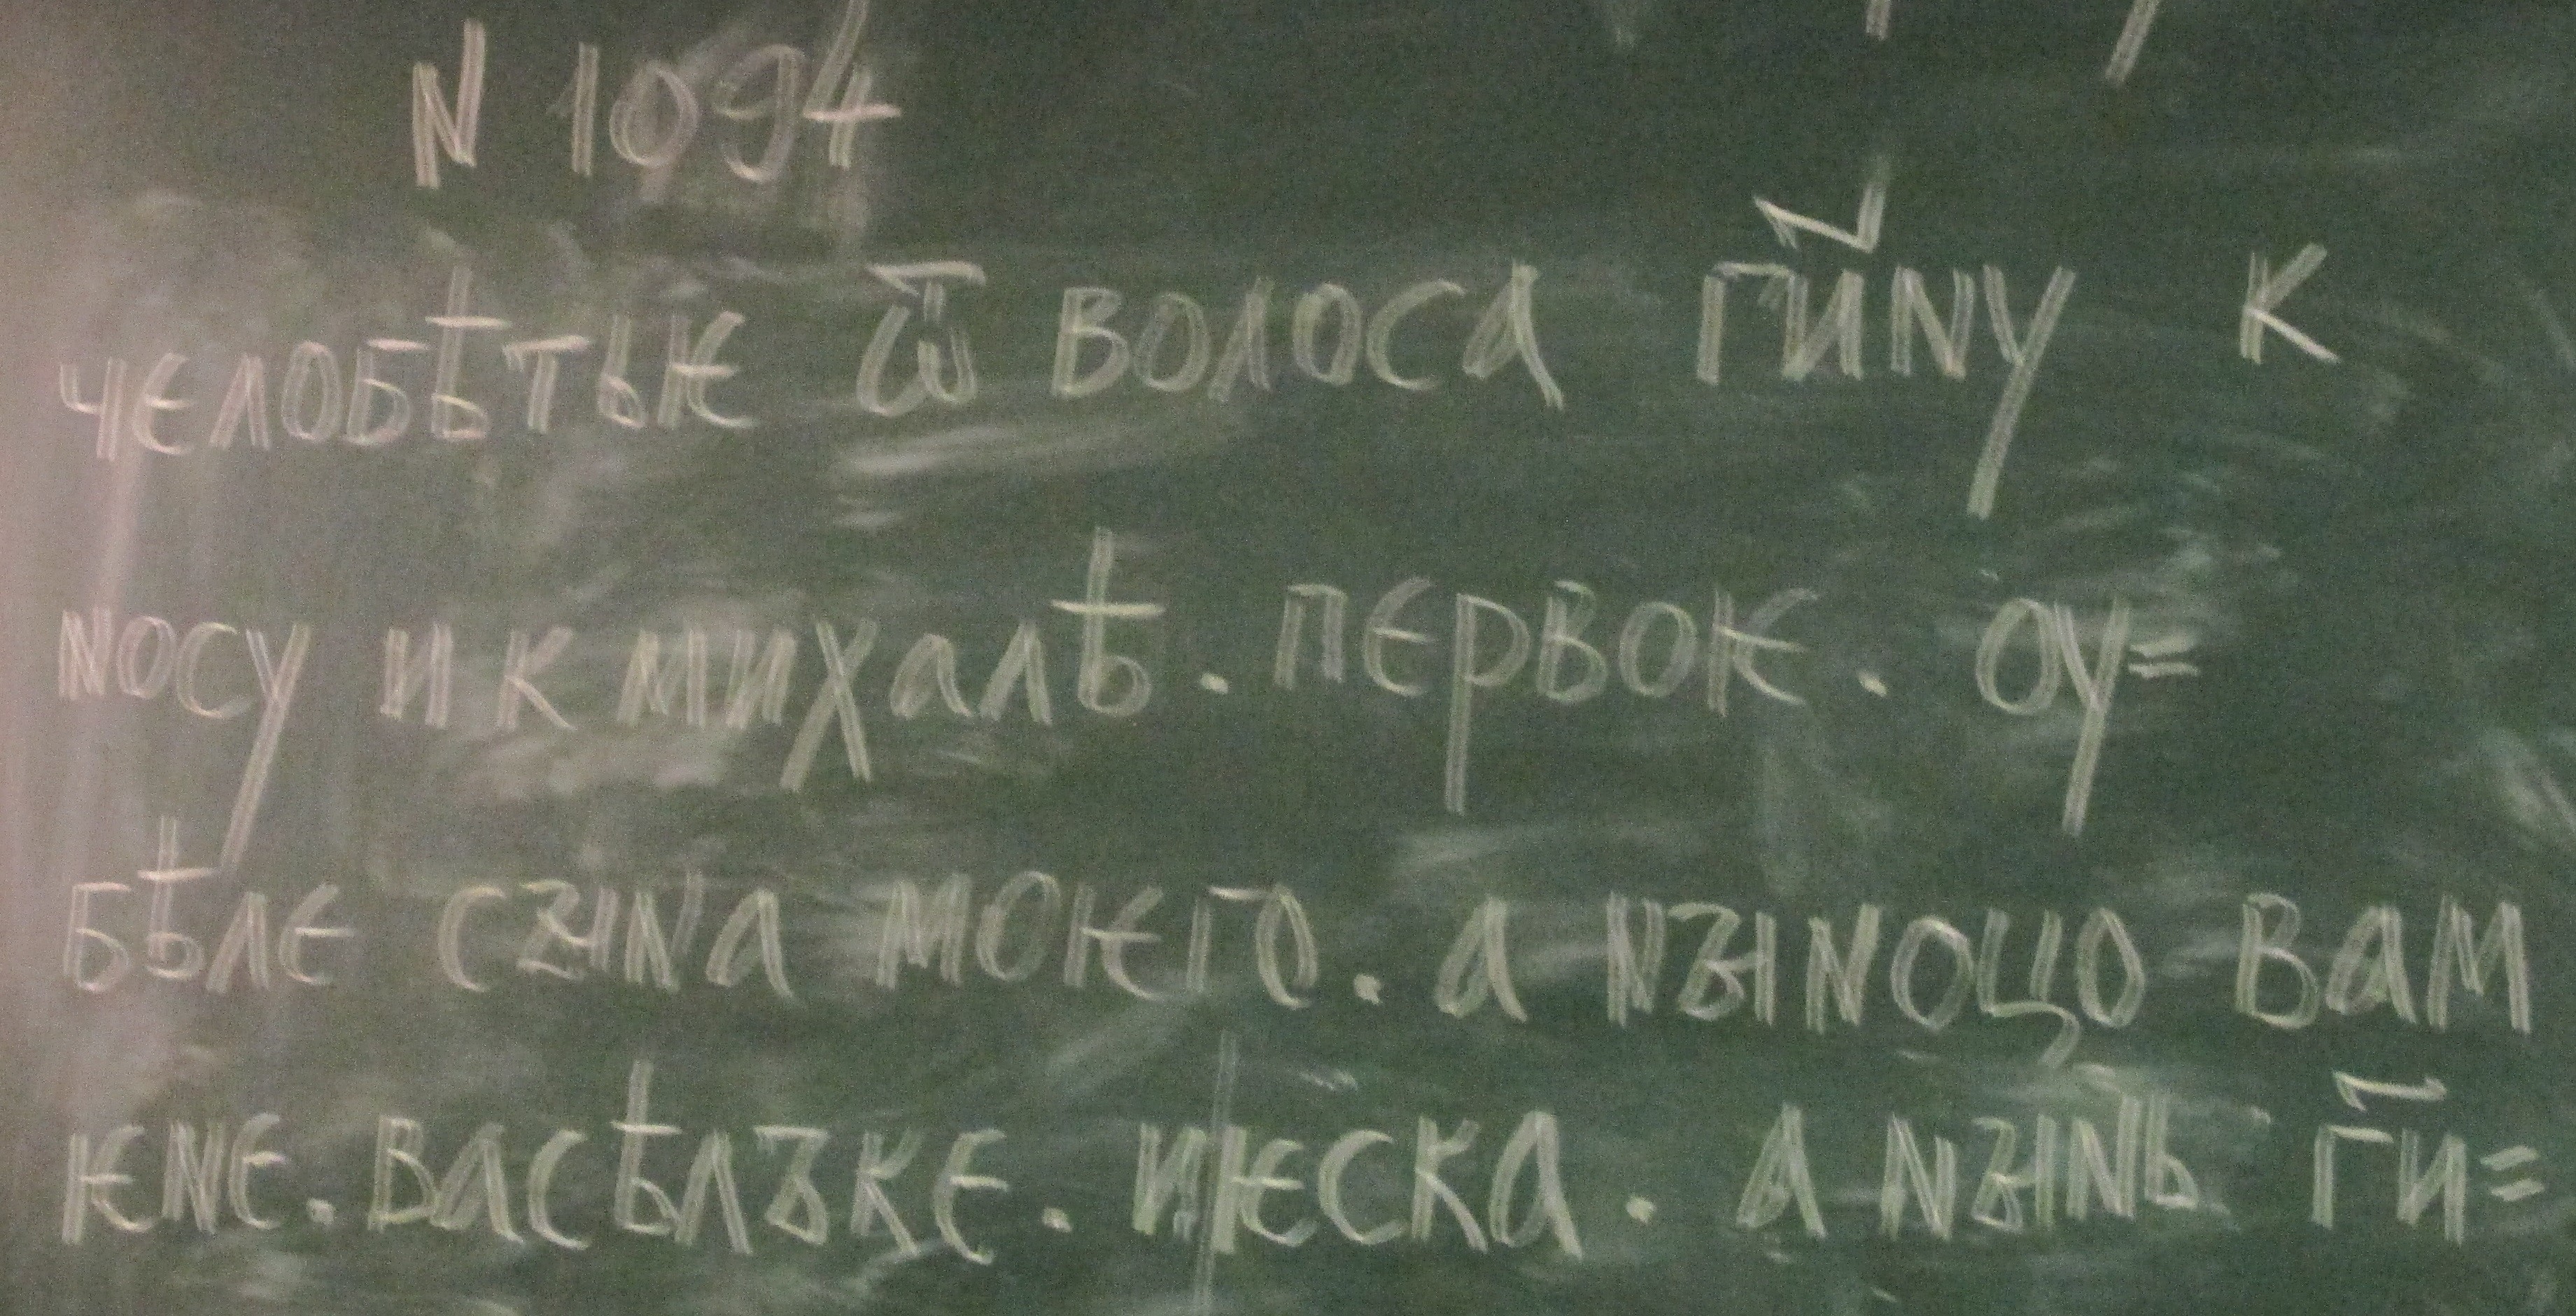 N 1094
челобѣтьѥ ѿ волоса г҃ину к
носу и к михалѣ . первоѥ . оу=
бѣле сꙑна моѥго . а нꙑноцо вам
ѥне . васѣлъке . и|ѥска . а нꙑнь г҃и=